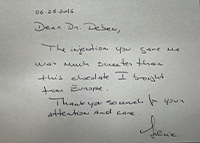 06.28.2016
Dear Dr. Deben,
The injection you gave me
was much sweeter than
this chocolate I brought
from Europe.
Thank you so much for your
attention and care